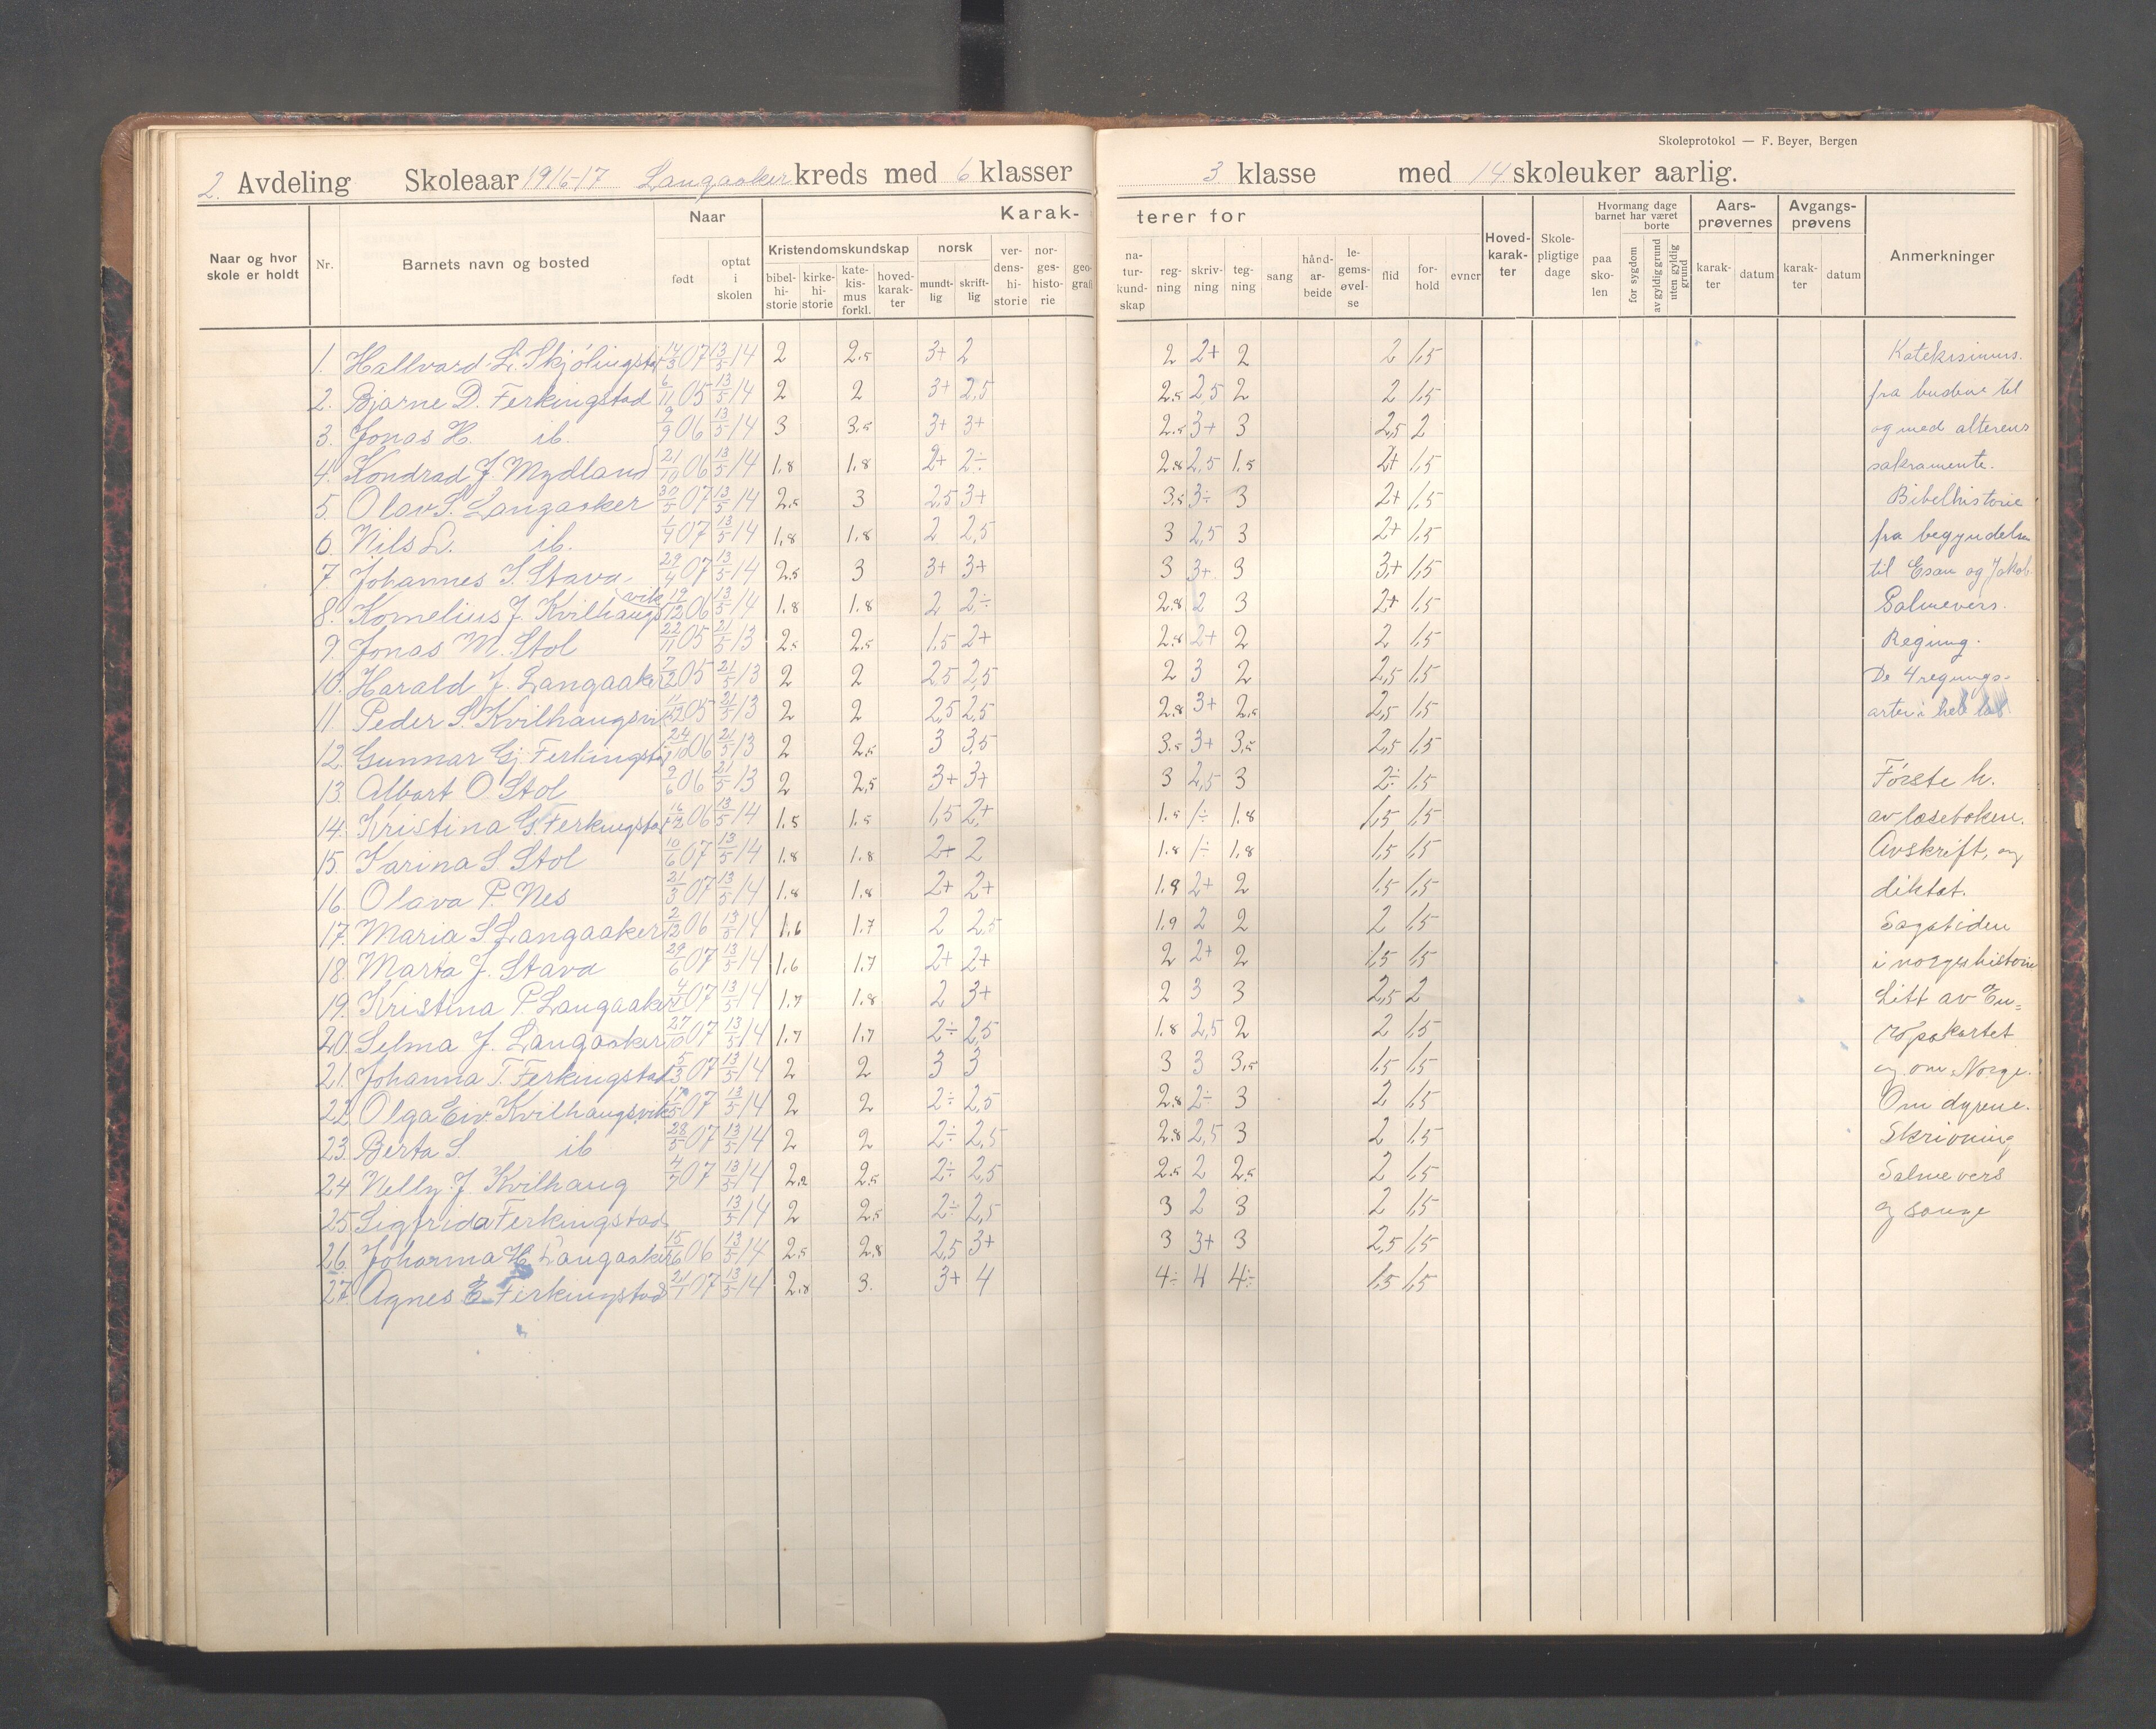 Skoleprotokol — F. Beyer, Bergen
2. Avdeling Skoleaar 1916-17 Langaaker kreds med 6 klasser 3 klasse med 14 skoleuker aarlig.
Naar og hvor skole er holdt Nr. Barnets navn og bosted Naar født optat i skolen Karakterer for Kristendomskundskap bibelhistorie kirkehistorie katekismus forkl. hovedkarakter norsk mundtlig skriftlig verdenshistorie norgeshistorie geografi naturkundskap regning skrivning tegning sang håndarbeide legemsøvelse flid forhold evner Hovedkarakter Skolepligtige dage Hvormang dage barnet har været paa skolen borte for sygdom av gyldig grund uten gyldig grund Aarsprøvernes karakter datum Avgangsprøvens karakter datum Anmerkninger
1. Hallvard L. Skjölingstad 14/3 07 13/5 14 2 2.5 3+ 2 2 2+ 2 2 1,5 Katekisimus.
2. Bjarne D. Ferkingstad 6/11 05 13/5 14 2 2 3+ 2,5 2.5 2,5 2 2 1,5 fra budene til
3. Jonas H. ib. 9/9 06 13/5 14 3 3.5 3+ 3+ 2.5 3+ 3 2,5 2 og med alterens
4. Kondrad J. Mydland 21/10 06 13/5 14 1.8 1.8 2+ 2÷ 2.8 2,5 1.5 2+ 1,5 sakramente.
5. Olav S. Langaaker 30/5 07 13/5 14 2.5 3 2,5 3+ 3.5 3÷ 3 2+ 1,5 Bibelhistorie
6. Nils L. ib. 1/4 07 13/5 14 1.8 1.8 2 2,5 3 2,5 3 2+ 1,5 fra begyndelsen
7. Johannes S. Stava 29/4 07 13/5 14 2.5 3 3+ 3+ 3 3+ 3 3+ 1,5 til Esau og Jakob.
8. Kornelius J. Kvilhaugsvik 19/12 06 13/5 14 1.8 1.8 2 2÷ 2.8 2 3 2+ 1,5 Salmevers.
9. Jonas M. Stol 22/11 05 21/5 13 2.5 2.5 1,5 2+ 2.8 2+ 2 2 1,5 Regning.
10. Harald J. Langaaker 7/12 05 21/5 13 2 2 2,5 2,5 2 3 2 2,5 1,5 De 4 regnings-
11. Peder S. Kvilhaugsvik 11/12 05 21/5 13 2 2 2,5 2,5 2.8 3+ 2.5 2,5 1,5 arter i hele
12. Gunnar Gj. Ferkingstad 24/10 06 21/5 13 2 2.5 3 3,5 3.5 3+ 3.5 2,5 1,5
13. Albert O. Stol 9/6 06 21/5 13 2 2.5 3+ 3+ 3 2,5 3 2÷ 1,5 Förste h.
14. Kristina G. Ferkingstad 16/12 06 13/5 14 1.5 1.5 1,5 2+ 1.5 1÷ 1.8 1,5 1,5 av læseboken.
15. Karina S. Stol 10/6 07 13/5 14 1.8 1.8 2+ 2 1.8 1÷ 1.8 1,5 1,5 Avskrift, og
16. Olava P. Nes 21/3 07 13/5 14 1.8 1.8 2+ 2+ 1.9 2+ 2 1,5 1,5 diktat.
17. Maria S Langaaker 2/12 06 13/5 14 1.6 1.7 2 2,5 1.9 2 2 2 1,5 Sagatiden
18. Marta J. Stava 29/6 07 13/5 14 1.6 1.7 2+ 2+ 2 2+ 2 1,5 1,5 i norgeshistorie
19. Kristina P. Langaaker 07 13/5 14 1.7 1.8 2 3+ 2 3 3 2,5 2 Litt av Eu=
20. Selma J. Langaaker 27/10 07 13/5 14 1.7 1.7 2÷ 2,5 1.8 2,5 2 2 1,5 ropakartet
21. Johanna T. Ferkingstad 5/3 07 13/5 14 2 2 3 3 3 3 3.5 1,5 1,5 og om Norge.
22. Olga Eiv. Kvilhaugsvik 07 13/5 14 2 2 2÷ 2,5 2.8 2÷ 3 2 1,5 Om dyrene.
23. Berta S. ib 28/5 07 13/5 14 2 2 2÷ 2,5 2.8 2,5 3 2 1,5 Skrivning
24. Nelly J. Kvilhaug 4/7 07 13/5 14 2.2 2.5 2÷ 2,5 2.5 2 2.5 2 1,5 Salmevers
25. Sigfrida Ferkingstad 13/5 14 2 2.5 2÷ 2,5 3 2 3 2 1,5 og sange
26. Johanna H. Langaaker 15/6 06 13/5 14 2.5 2.8 2,5 3+ 3 3+ 3 2,5 1,5
27. Agnes E. Ferkingstad 21/1 07 13/5 14 2.8 3. 3+ 4 4÷ 4 4÷ 1,5 1,5